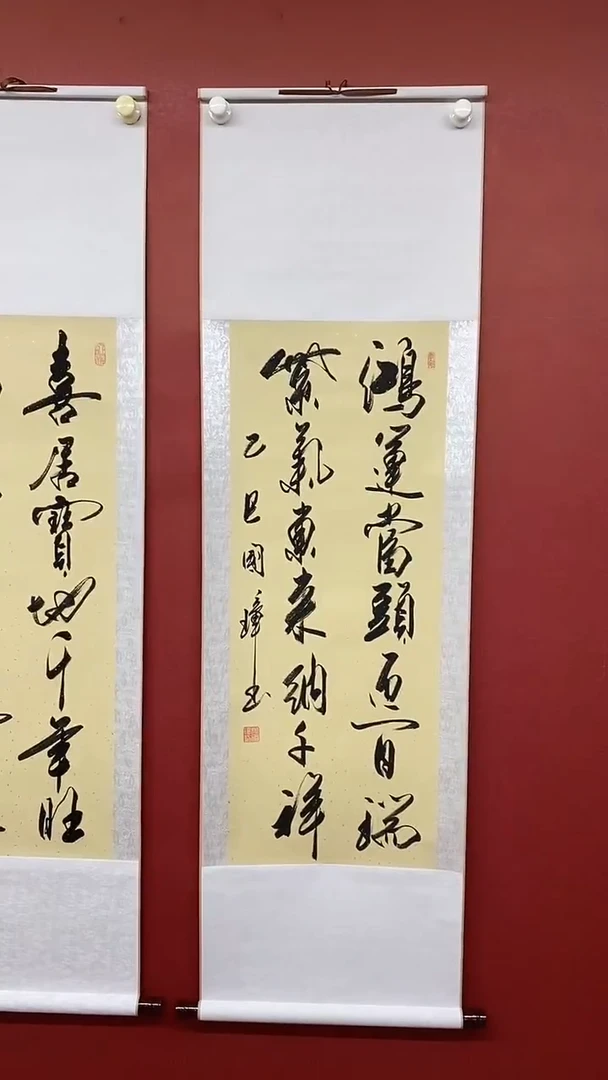 鴻運當頭迎百瑞
紫氣東来納千祥
乙巳國璋書
喜居寶地千年旺